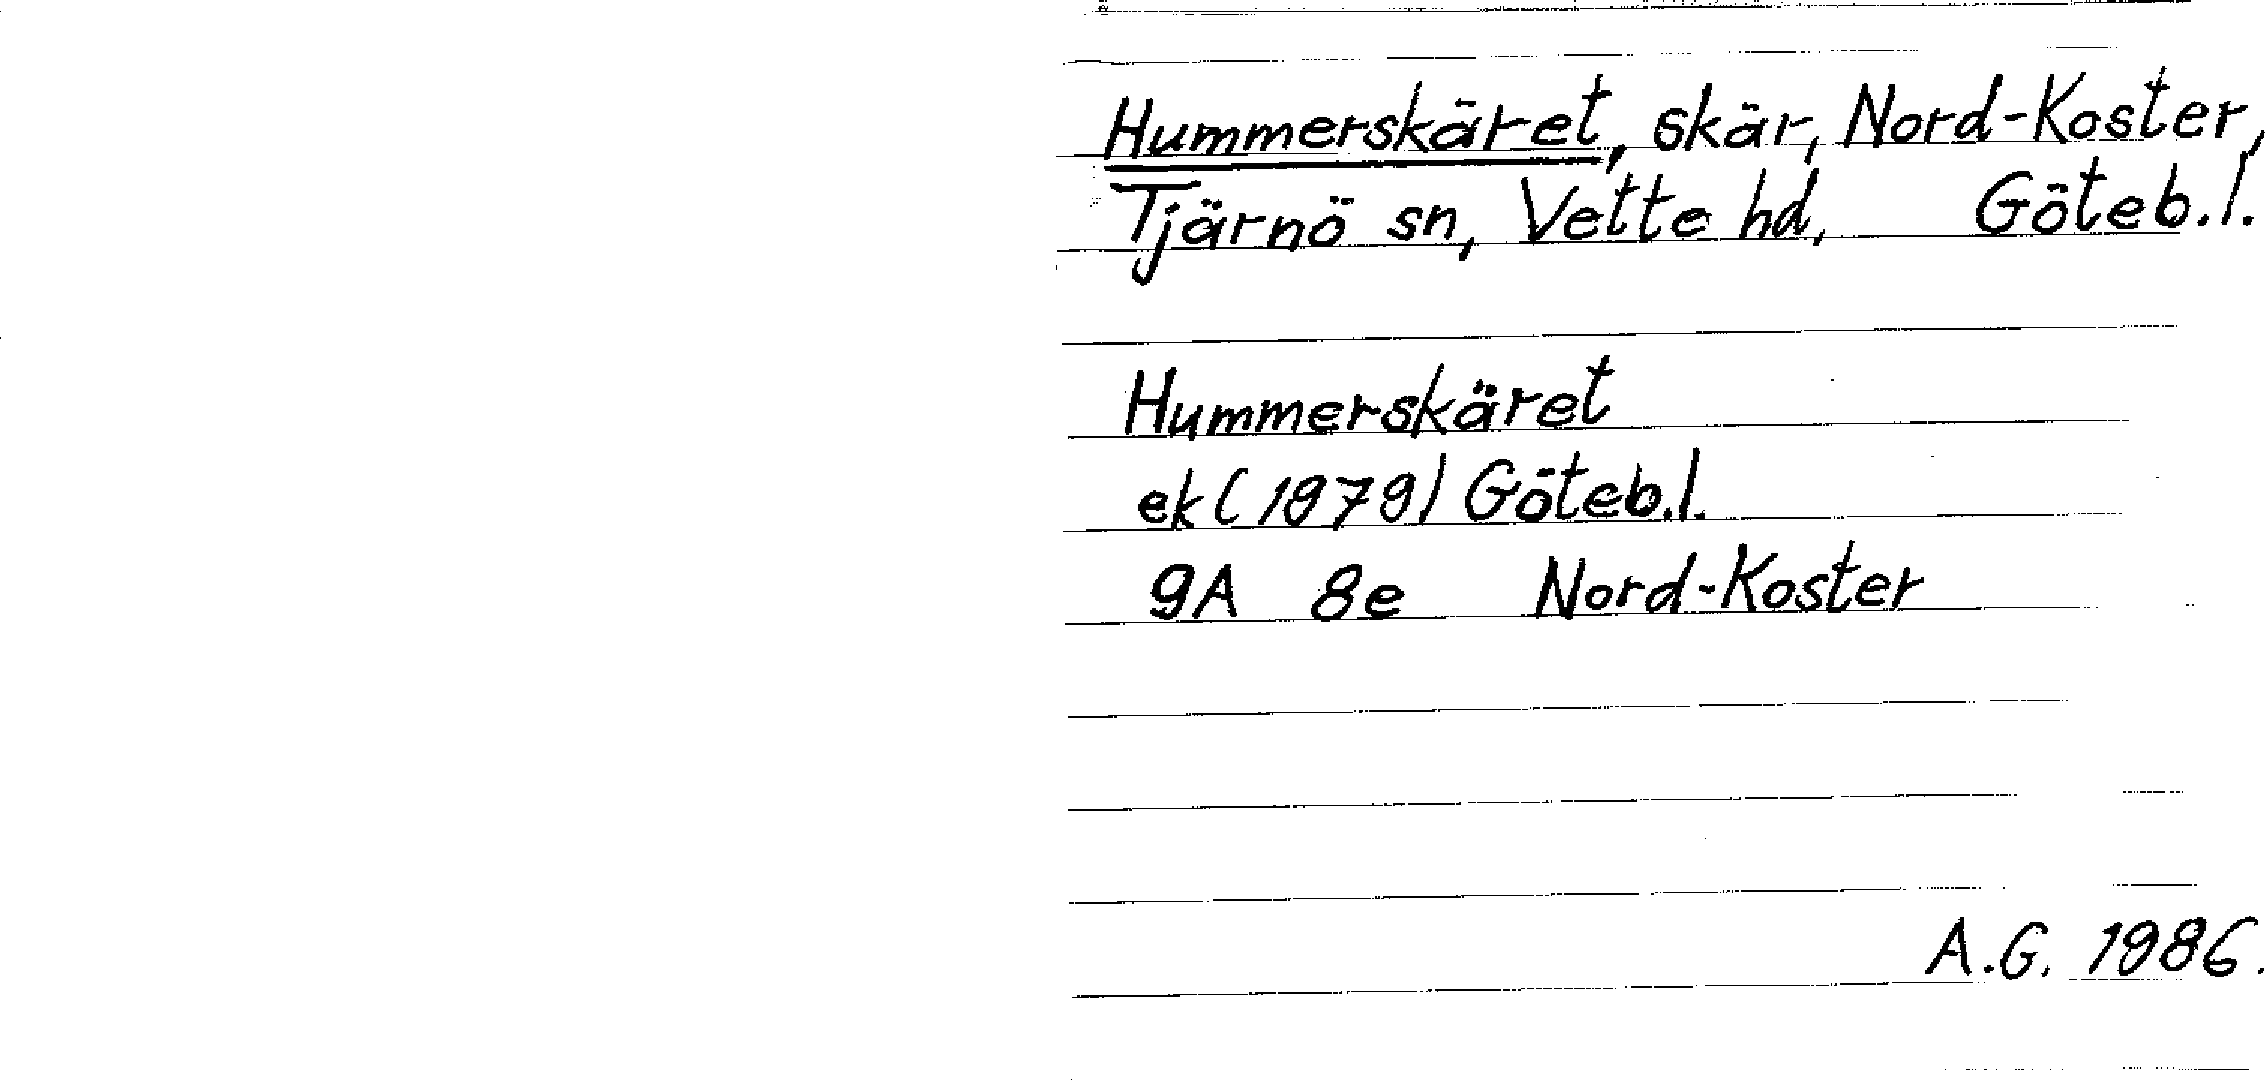 Hummerskäret, skär, Nord-Koster,
Tjärnö sn, Vette hd, Göteb.l.
Hummerskäret
ek (1979) Göteb.l.
9A 8e Nord-Koster
A.G. 1986.